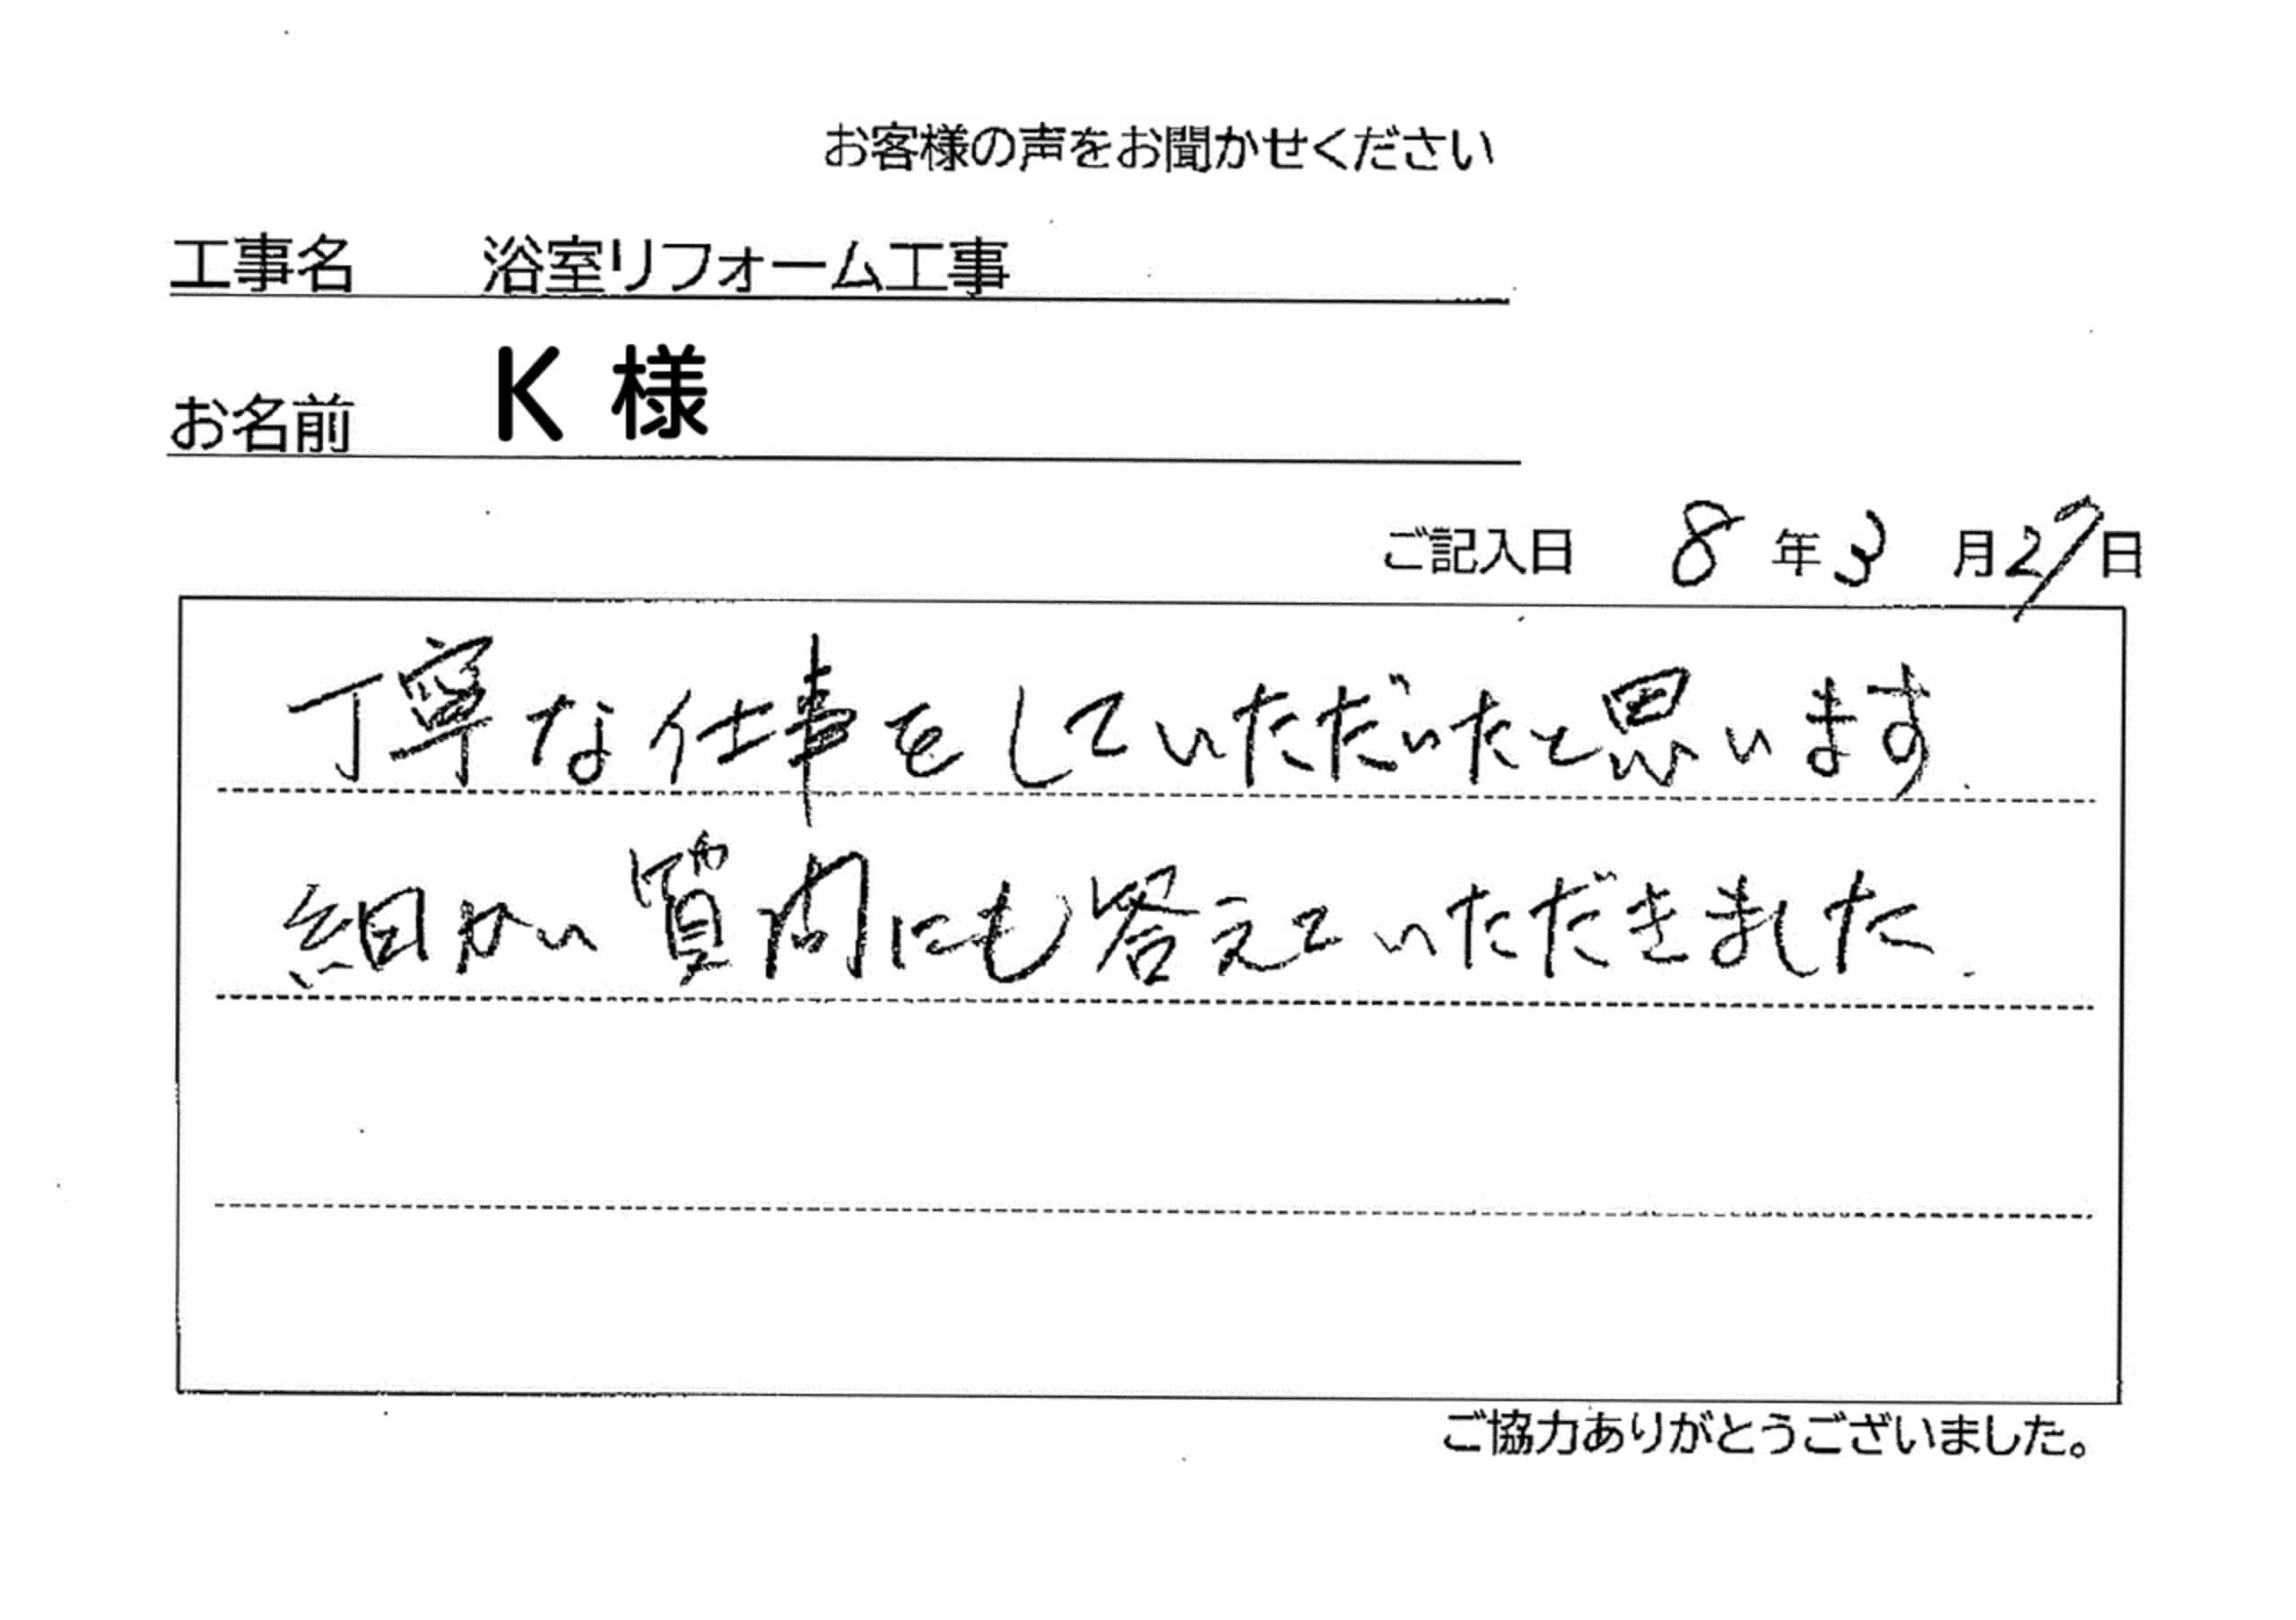 お客様の声をお聞かせください
工事名 浴室リフォーム工事
お名前 K 様
ご記入日 8年3月27日
丁寧な仕事をしていただいたと思います.
細かい質問にも答えていただきました.
ご協力ありがとうございました。